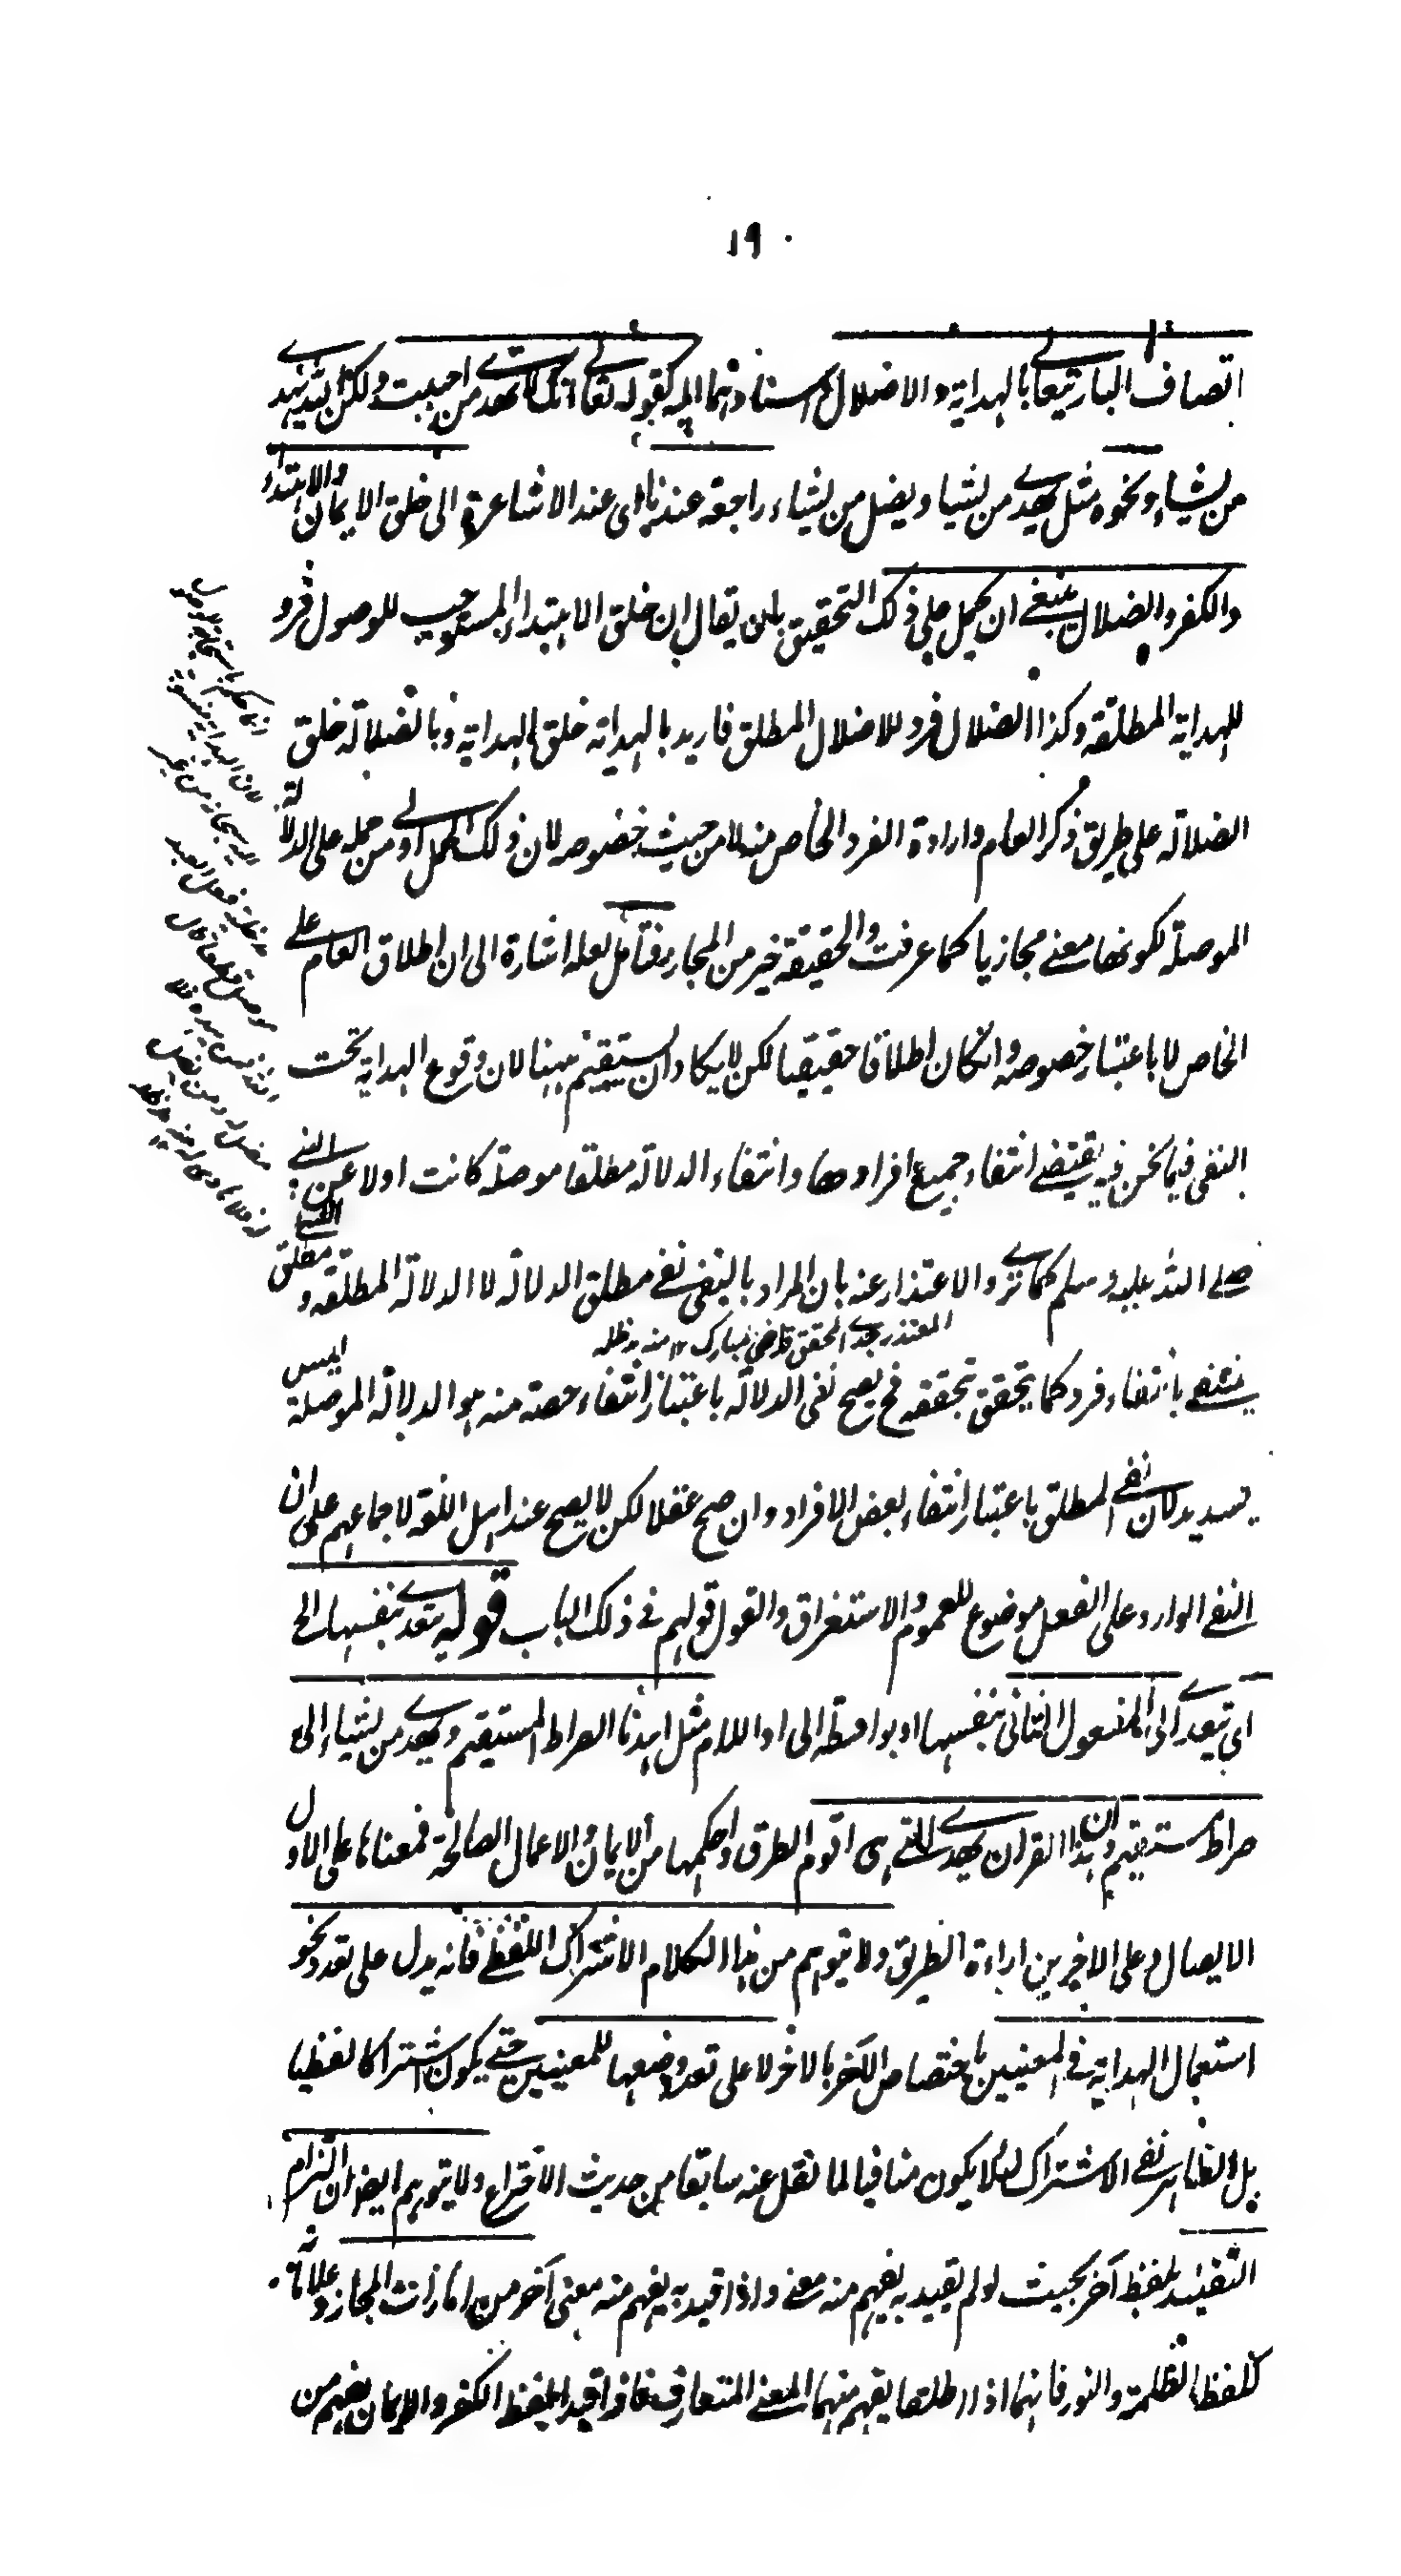 ١٩
اتصاف الباري تعالى بالهداية والاضلال واسنادهما اليه كقوله تعالى انك لا تهدي من احببت ولكن الله يهدي
من يشاء ونحوه مثل يهدي من يشاء ويضل من يشاء راجعة عندنا اى عند الاشاعرة الى خلق الايمان والاهتداء
والكفر والضلال ينبغي ان يحمل على ذلك التحقيق بان يقال ان خلق الاهتداء المستوجب للوصول فرد
للهداية المطلقة وكذا الضلال فرد للاضلال المطلق فاريد بالهداية خلق الهداية وبالضلالة خلق
الضلالة على طريق ذكر العام وارادة الفرد الخاص منه لا من حيث خصوصه لان ذلك الحمل اولى من حمله على الدلالة
الموصلة لكونها معنى مجازيا كما عرفت والحقيقة خير من المجاز فتأمل لعله اشارة الى ان اطلاق العام على
الخاص لا باعتبار خصوصه وانكان اطلاقا حقيقيا لكن لا يكاد ان يستقيم ههنا لان وقوع الهداية تحت
النفى فيما نحن فيه يقتضى انتفاء جميع افرادها وانتفاء الدلالة مطلقا موصلة كانت اولا عن النبي
صلى الله عليه وسلم كما ترى والاعتذار عنه بان المراد بالنفى نفى مطلق الدلالة لا الدلالة المطلقة ومطلق الشيء
المعتذر جدي المحقق قاضي مبارك ١٢ منه مدظله
ينتفى بانتفاء فرد كما يتحقق بتحققه فح يصح نفى الدلالة باعتبار انتفاء حصة منه هو الدلالة الموصلة ليس
بسديد لان نفى المطلق باعتبار انتفاء بعض الافراد وان صح عقلا لكن لا يصح عند اهل اللغة لاجماعهم على ان
النفى الوارد على الفعل موضوع للعموم والاستغراق والقول قولهم فى ذلك الباب قوله يتعدى بنفسها الخ
اى يتعدى الى المفعول الثانى بنفسها او بواسطة الى او اللام مثل اهدنا الصراط المستقيم ويهدي من يشاء الى
صراط مستقيم وان هذا القران يهدي للتى هى اقوم الطرق واحكمها من الايمان والاعمال الصالحة فمعناها على الاول
الايصال وعلى الاخيرين اراءة الطريق ولا يتوهم من هذا الكلام الاشتراك اللفظى فانه يدل على تعدد نحو
استعمال الهداية فى المعنيين باختصاص الآخر بالاخر لا على تعدد وضعها للمعنيين حتى يكون اشتراكا لفظيا
بل الظاهر نفى الاشتراك لئلا يكون منافيا لما نقل عنه سابقا من حديث الاقتراع ولا يتوهم ايضا ان التزام
التقييد بلفظ آخر بحيث لو لم يقيد به يفهم منه معنى واذا قيد به يفهم منه معنى آخر من امارات المجاز وعلاماته
كلفظ الظلمة والنور فانهما اذا اطلقا يفهم منهما المعنى المتعارف فاذا قيدا بلفظ الكفر والايمان يفهم من